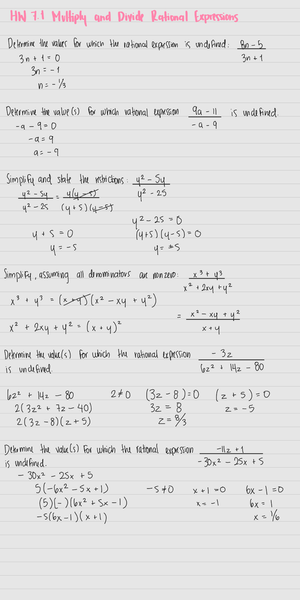 HN 7.1 Multiply and Divide Rational Expressions
Determine the values for which the rational expression is undefined: (8n - 5)/(3n + 1)
3n + 1 = 0
3n = -1
n = -1/3
Determine the value(s) for which rational expression (9a - 11)/(-a - 9) is undefined
-a - 9 = 0
-a = 9
a = -9
Simplify and state the restrictions: (y² - 5y)/(y² - 25)
(y² - 5y)/(y² - 25) = y(y - 5)/(y + 5)(y - 5)
y² - 25 = 0
y + 5 = 0 (y+5)(y-5) = 0
y = -5 y = ±5
Simplify, assuming all denominators are nonzero: (x³ + y³)/(x² + 2xy + y²)
x³ + y³ = (x + y)(x² - xy + y²)
= (x² - xy + y²)/(x + y)
x² + 2xy + y² = (x + y)²
Determine the value(s) for which the rational expression (-3z)/(6z² + 14z - 80)
is undefined.
6z² + 14z - 80 2≠0 (3z - 8) = 0 (z + 5) = 0
2(3z² + 7z - 40) 3z = 8 z = -5
2(3z - 8)(z + 5) z = 8/3
Determine the value(s) for which the rational expression (-11z + 1)/(-30x² - 25x + 5)
is undefined.
- 30x² - 25x + 5
5(-6x² - 5x + 1) -5 ≠ 0 x + 1 = 0 6x - 1 = 0
(5)(-)(6x² + 5x - 1) x = -1 6x = 1
-5(6x - 1)(x + 1) x = 1/6